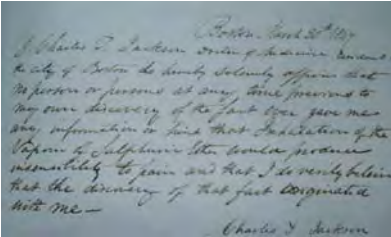 Boston, March 20th 1847
I Charles T. Jackson Doctor of Medicine
the city of Boston do hereby solemnly affirm that
no person or persons at any time previous to
my own discovery of the fact ever gave me
any information or hint that Inhalation of the
Vapour of Sulphuric Ether would produce
insensibility to pain and that I do verily believe
that the discovery of that fact originated
with me —
Charles T. Jackson